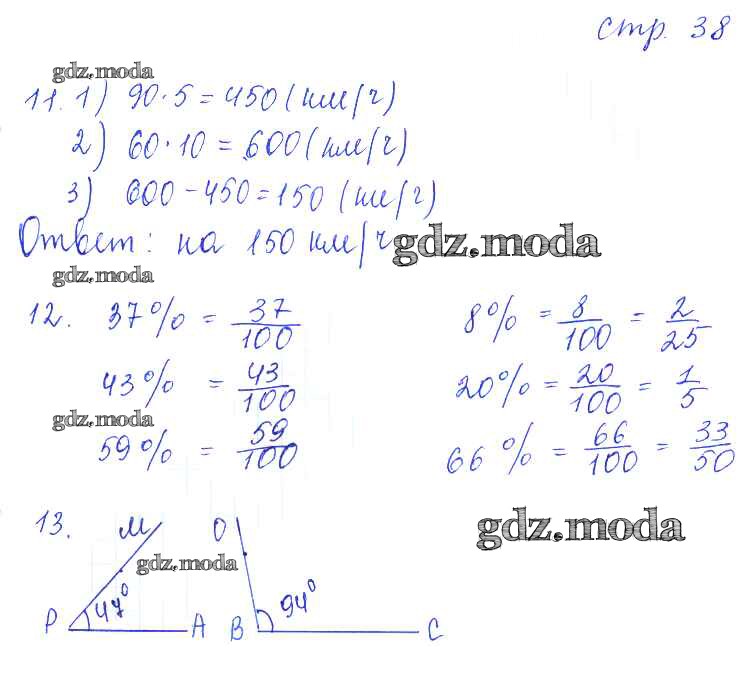 стр. 38
gdz.moda
11. 1) 90·5=450 (км/ч)
2) 60·10=600 (км/ч)
3) 600-450=150 (км/ч)
Ответ: на 150 км/ч
gdz.moda
gdz.moda
12. 37% = 37/100 8% = 8/100 = 2/25
43% = 43/100 20% = 20/100 = 1/5
gdz.moda
59% = 59/100 66% = 66/100 = 33/50
gdz.moda
13. M O
gdz.moda
P 47° A B 94° C